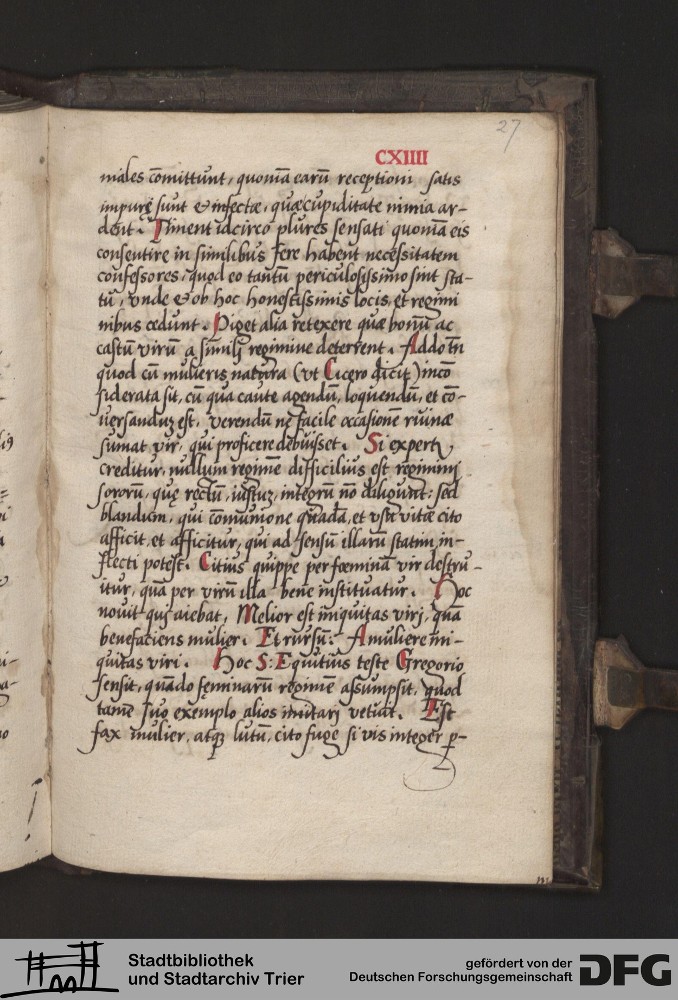 27
CXIIII
miales cōmittunt, quoniā earū receptioni satis
impurę sunt & infectæ, quæ cupiditate nimia ar-
dent. Timent idcirco plures sensati quoniam eis
consentire in similibus fere habent necessitatem
confessores, quod eo tantū periculosissimo sint sta-
tū, vnde & ob hoc honestissimis locis, et regimi
nibus cedunt. Piget alia retexere quæ bonū ac
castū virū a simili regimine deterrent. Addo tn̄
quod cū mulieris natura (vt Cicero dicit) incō
siderata sit, cū qua caute agendū, loquendū, et cō-
uersandum est, verendū ne facile occasionē ruinæ
sumat vir, qui proficere debuisset. Si experto
creditur, nullum regimē difficilius est regimini
sororū, quę rectū, iustum, integrū nō diligunt: sed
blandum, qui cōmunione quadā, et vsu vitæ cito
afficit, et afficitur, qui ad sensū illarū statim in-
flecti potest. Citius quippe per fœminam vir destru-
itur, quā per virū illa bene instituatur. Hoc
nouit qui aiebat, Melior est iniquitas viri, quā
benefaciens mulier. Et rursū: A muliere ini-
quitas viri. Hoc S: Equitius teste Gregorio
sensit, quādo feminarū regimē assumpsit, quod
tamē suo exemplo alios imitari vetuit. Est
fax mulier, atque lutū, cito fuge si vis integer p-
Stadtbibliothek
und Stadtarchiv Trier
gefördert von der
Deutschen Forschungsgemeinschaft
DFG